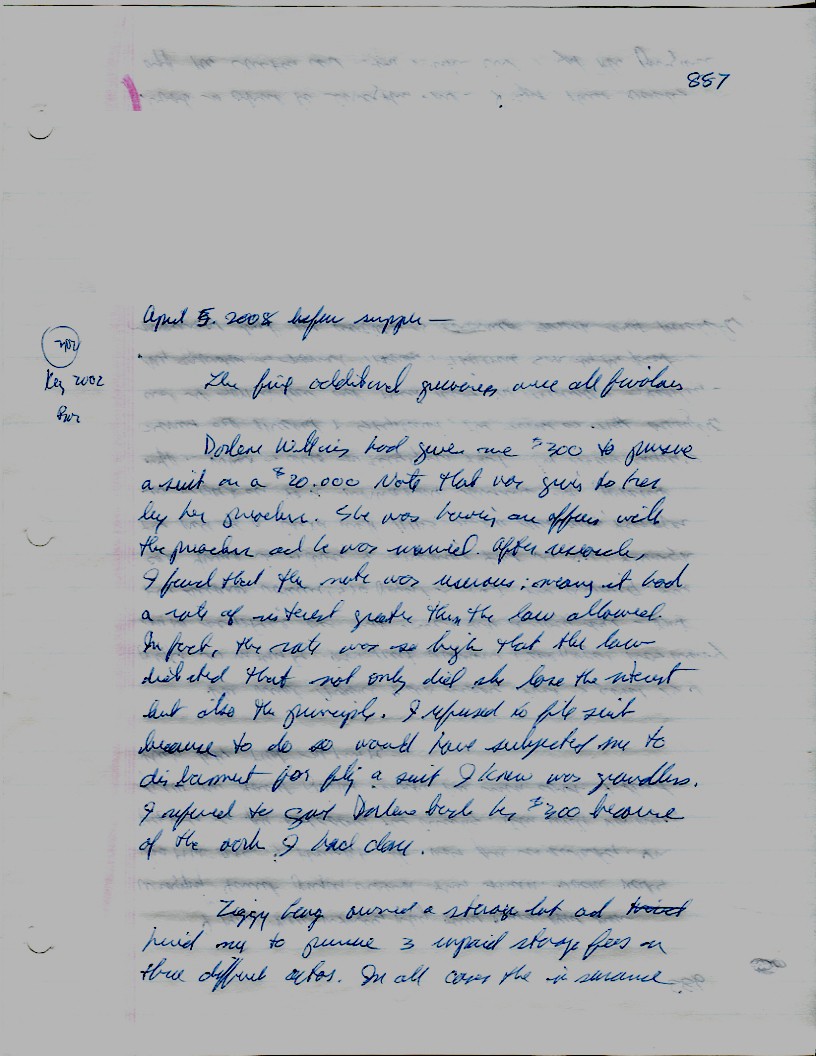 857
April 5. 2008 before supper —
Key 2002
The five additional grievances were all frivolous
Darlene Wilkins had given me $300 to pursue
a suit on a $20.000 Note that was given to her
by her preacher. She was having an affair with
the preacher and he was married. After research,
I found that the note was userous; meaning it had
a rate of interest greater than the law allowed.
In fact, the rate was so high that the law
dictated that not only did she lose the interest
but also the principle. I refused to file suit
because to do so would have subjected me to
disbarment for filing a suit I knew was groundless.
I refused to give Darlene back her $300 because
of the work I had done.
Ziggy owned a storage lot and
hired me to pursue 3 unpaid storage fees on
three different autos. In all cases the insurance